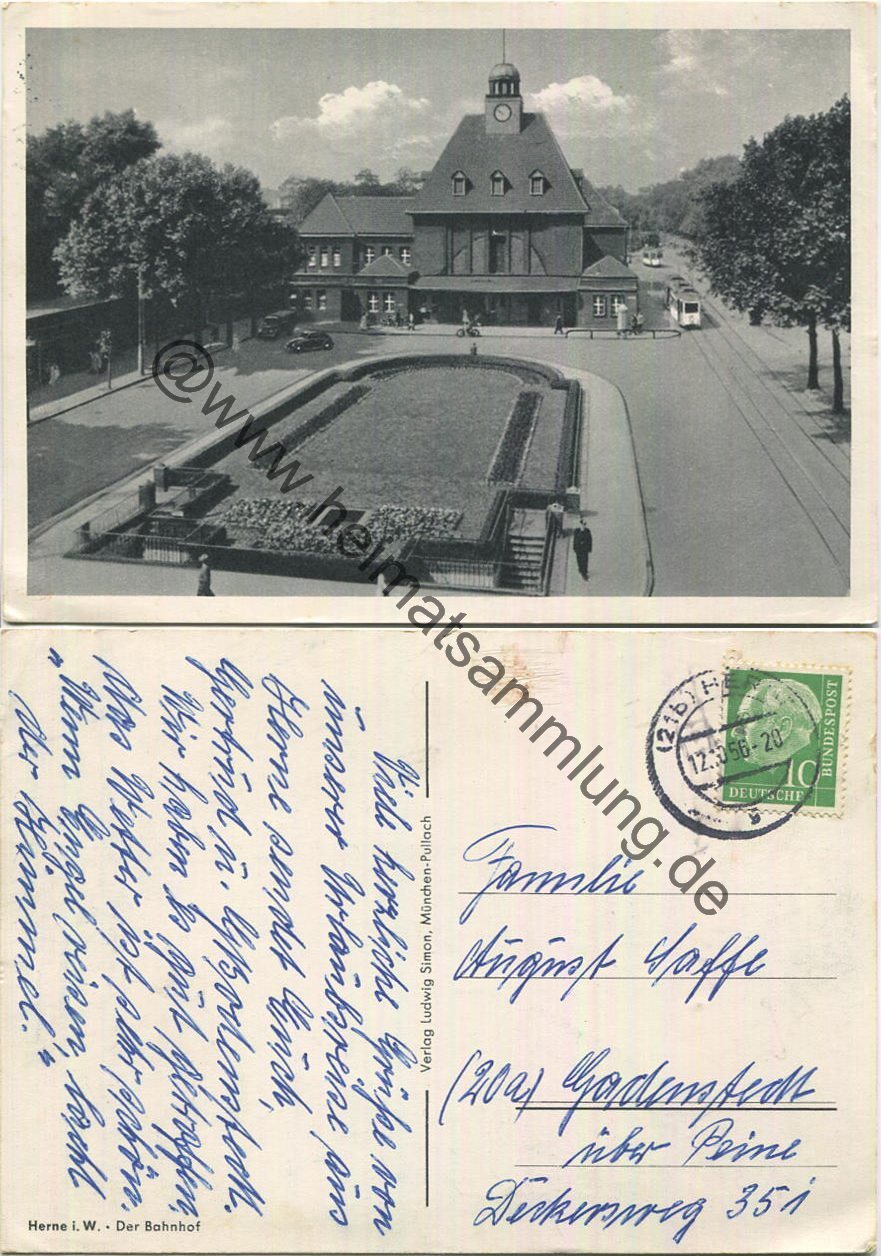 @www.heimatsammlung.de
Viele herzliche Grüße von
unserer Urlaubsreise aus
Herne sendet Euch,
Gertrud u.
Wir haben es gut getroffen,
das Wetter ist sehr schön.
"Wenn Engel reisen lacht
der Himmel."
Verlag Ludwig Simon, München-Pullach
Herne i. W. · Der Bahnhof
(21b) HER
12. 56-20
10
DEUTSCHE
BUNDESPOST
Familie
August Saffe
(20a) Gadenstedt
über Peine
Deckersweg 351